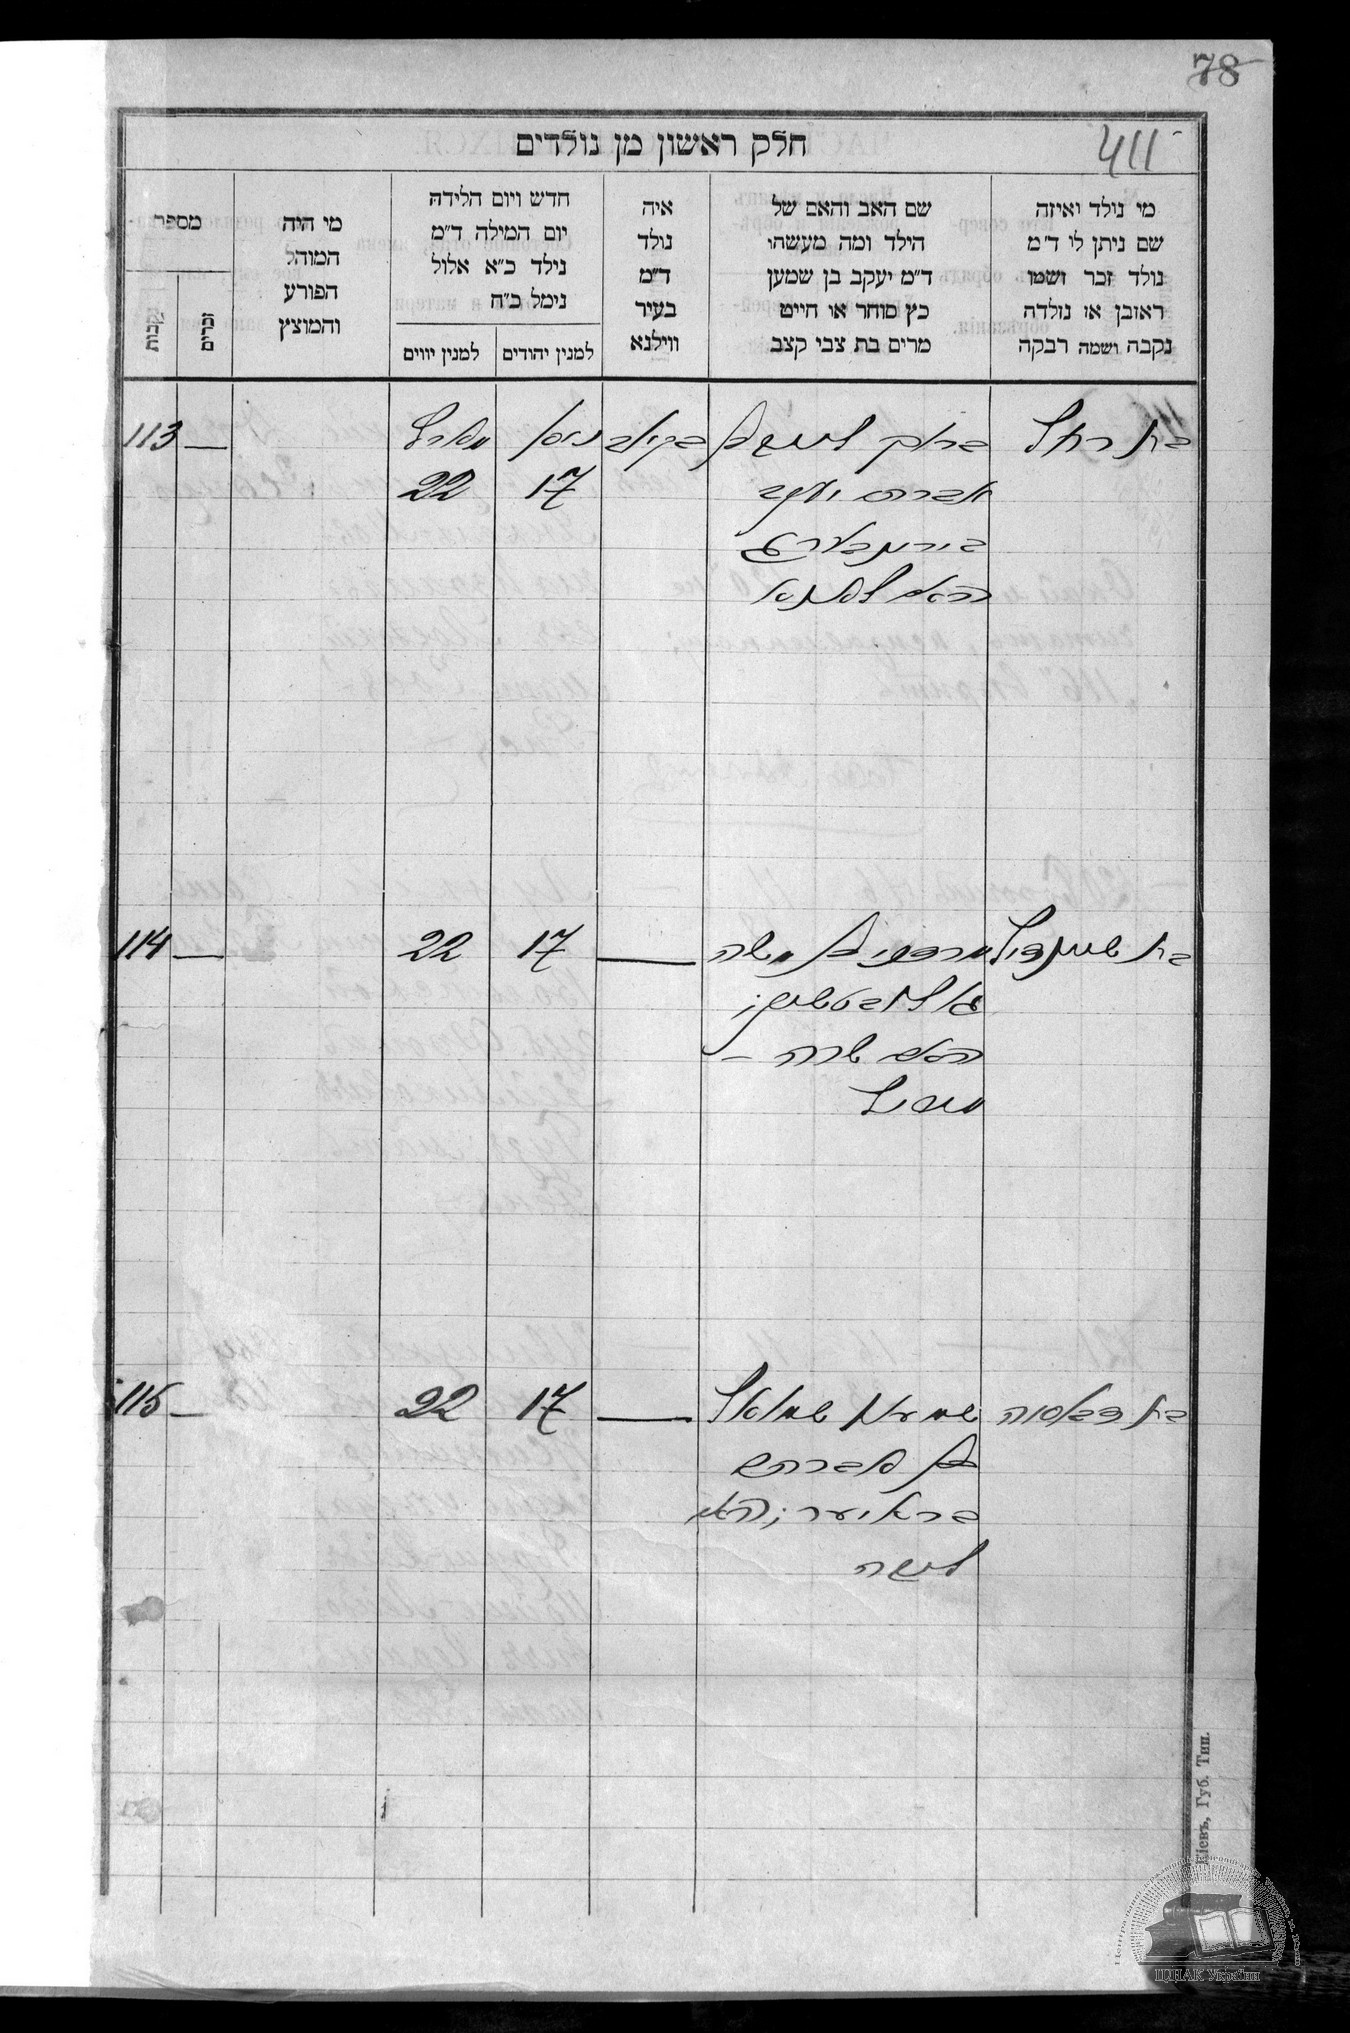 78
411
חלק ראשון מן נולדים
מי נולד ואיזה
שם ניתן לי ד״מ
נולד זכר ושמו
ראובן או נולדה
נקבה ושמה רבקה
שם האב והאם של
הילד ומה מעשהו
ד״מ יעקב בן שמען
כץ סוחר או חייט
מרים בת צבי קצב
איה
נולד
ד״מ
בעיר
ווילנא
חדש ויום הלידה
יום המילה ד״מ
נילד כ״א אלול
נימל כ״ח
למנין יהודים
למנין יווים
מי היה
המוהל
הפורע
והמוצץ
מספר
זכרים
נקבות
בת רחל
ברוך ליב בן
אברהם יעקב
האם
בקיוב
ניסן
17
מארץ
22
—
113
בת שיינדיל
מרדכי בן משה
האם שרה –
מירל
—
17
22
—
114
בת באסיה
שמעון שמואל
בן אברהם
בראיער; האם
ליבה
—
17
22
—
115
Кіевъ, Губ. Тип.
ЦДІАК України